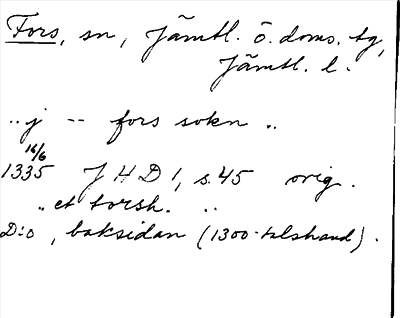 Fors, sn, Jämtl. ö. doms. tg,
Jämtl. l.
"j -- fors sokn"
16/6
1335 JHD 1, s. 45 orig.
"et torsh."
D:o, baksidan (1300-talshand).